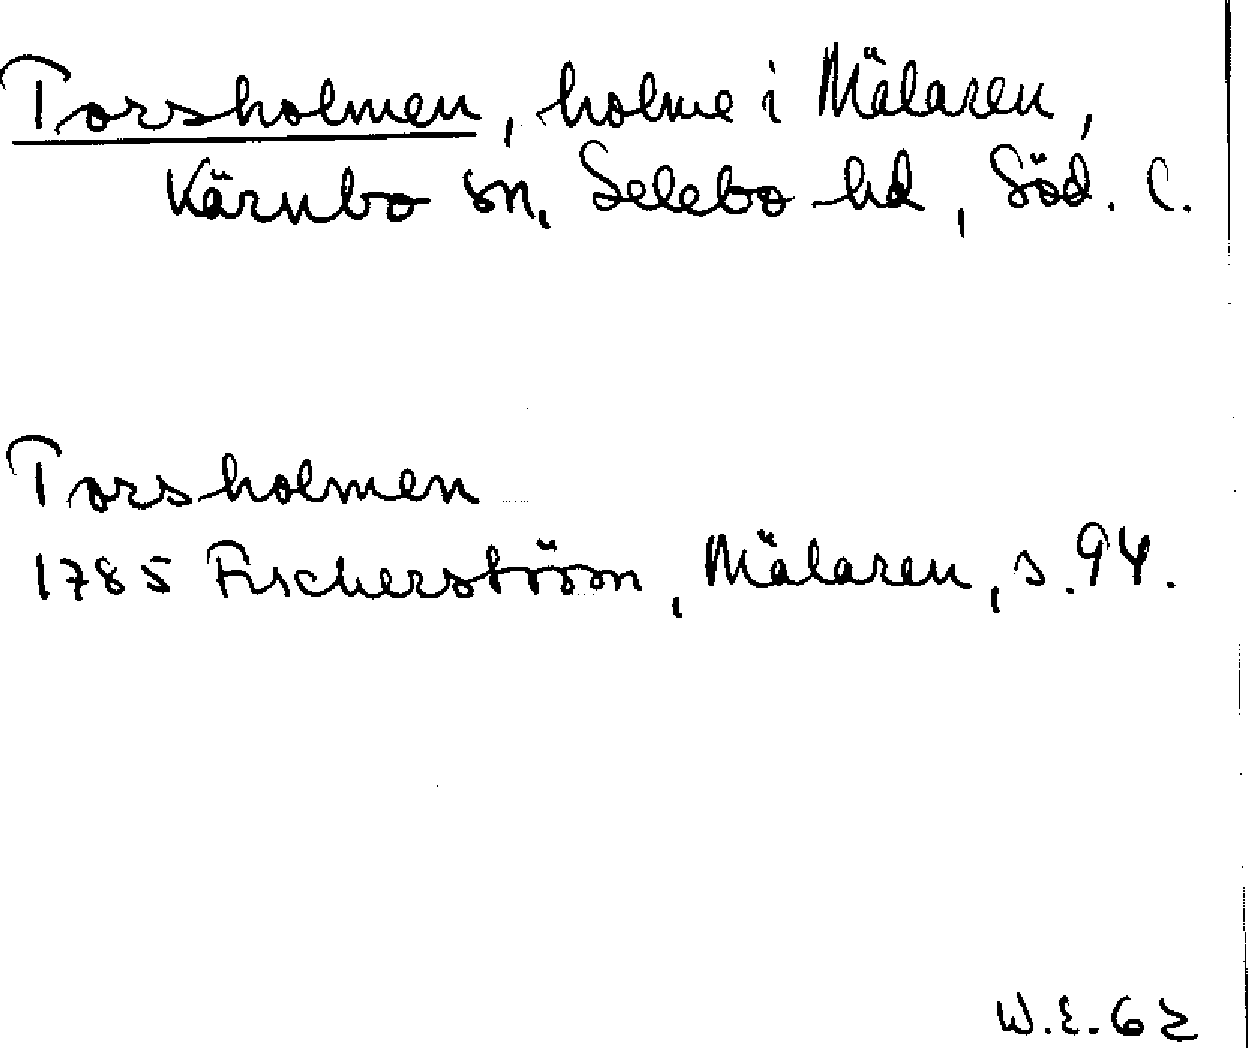 Torsholmen, holme i Mälaren,
Kärnbo sn, Selebo hd, Söd. l.
Torsholmen
1785 Fischerström, Mälaren, s. 94.
W.E. 62